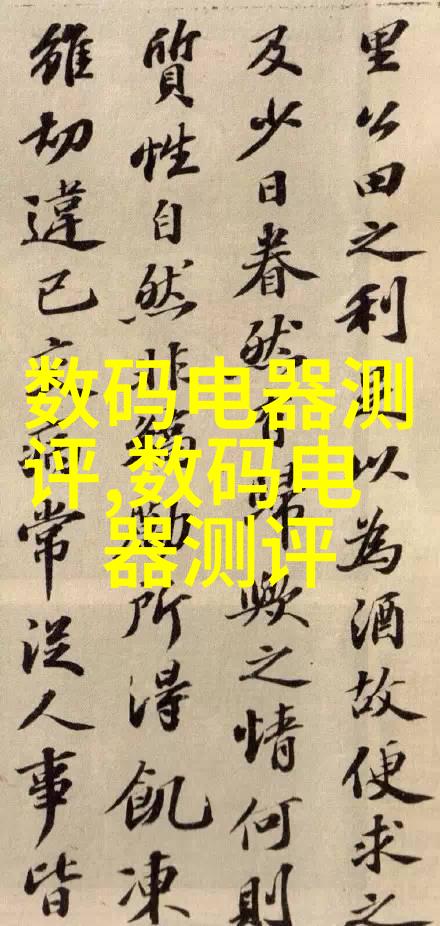 里公田之利以為酒故便求之
及少日眷然歸歟之情何則
質性自然非所得飢凍
雖切違己常從人事皆
数码电器测
评,数码电
器测评